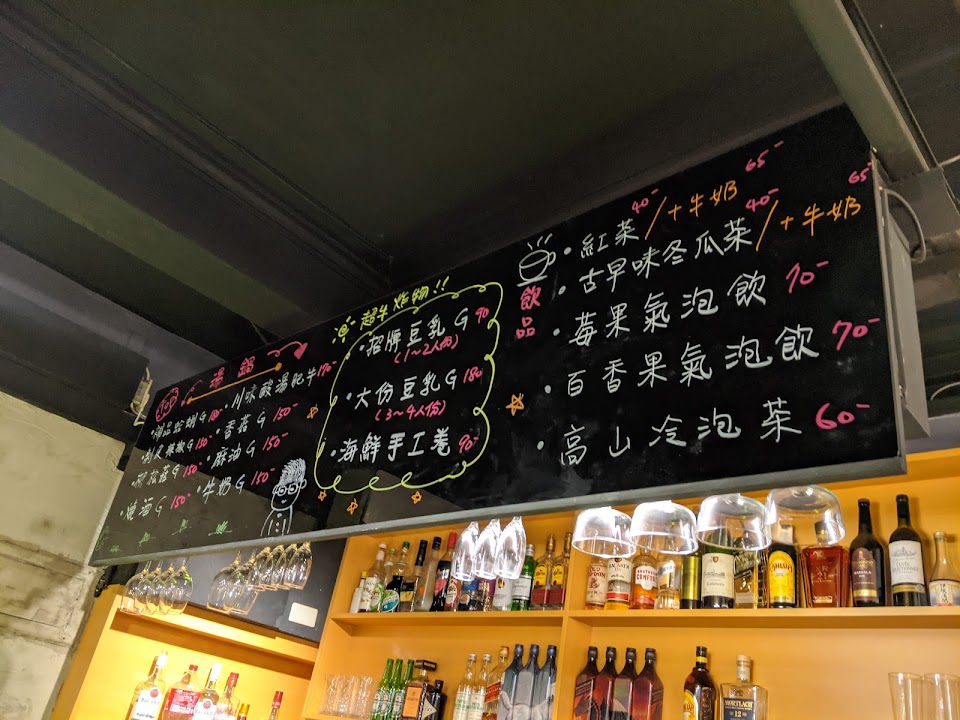 湯鍋
川味酸湯肥牛 170-
精品蛤蜊G 180-
香菇G 150-
剝皮辣椒G 150-
麻油G 150-
150-
燒酒G 150-
牛奶G 150-
超牛炸物!!
招牌豆乳G 90
(1~2人份)
大份豆乳G 180
(3~4人份)
海鮮手工卷 90-
飲品
紅茶 40- / +牛奶 65-
古早味冬瓜茶 40- / +牛奶 65-
莓果氣泡飲 70-
百香果氣泡飲 70-
高山冷泡茶 60-
BACARDI
MORTLACH
12